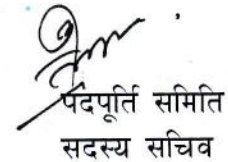 पदपूर्ति समिति
सदस्य सचिव